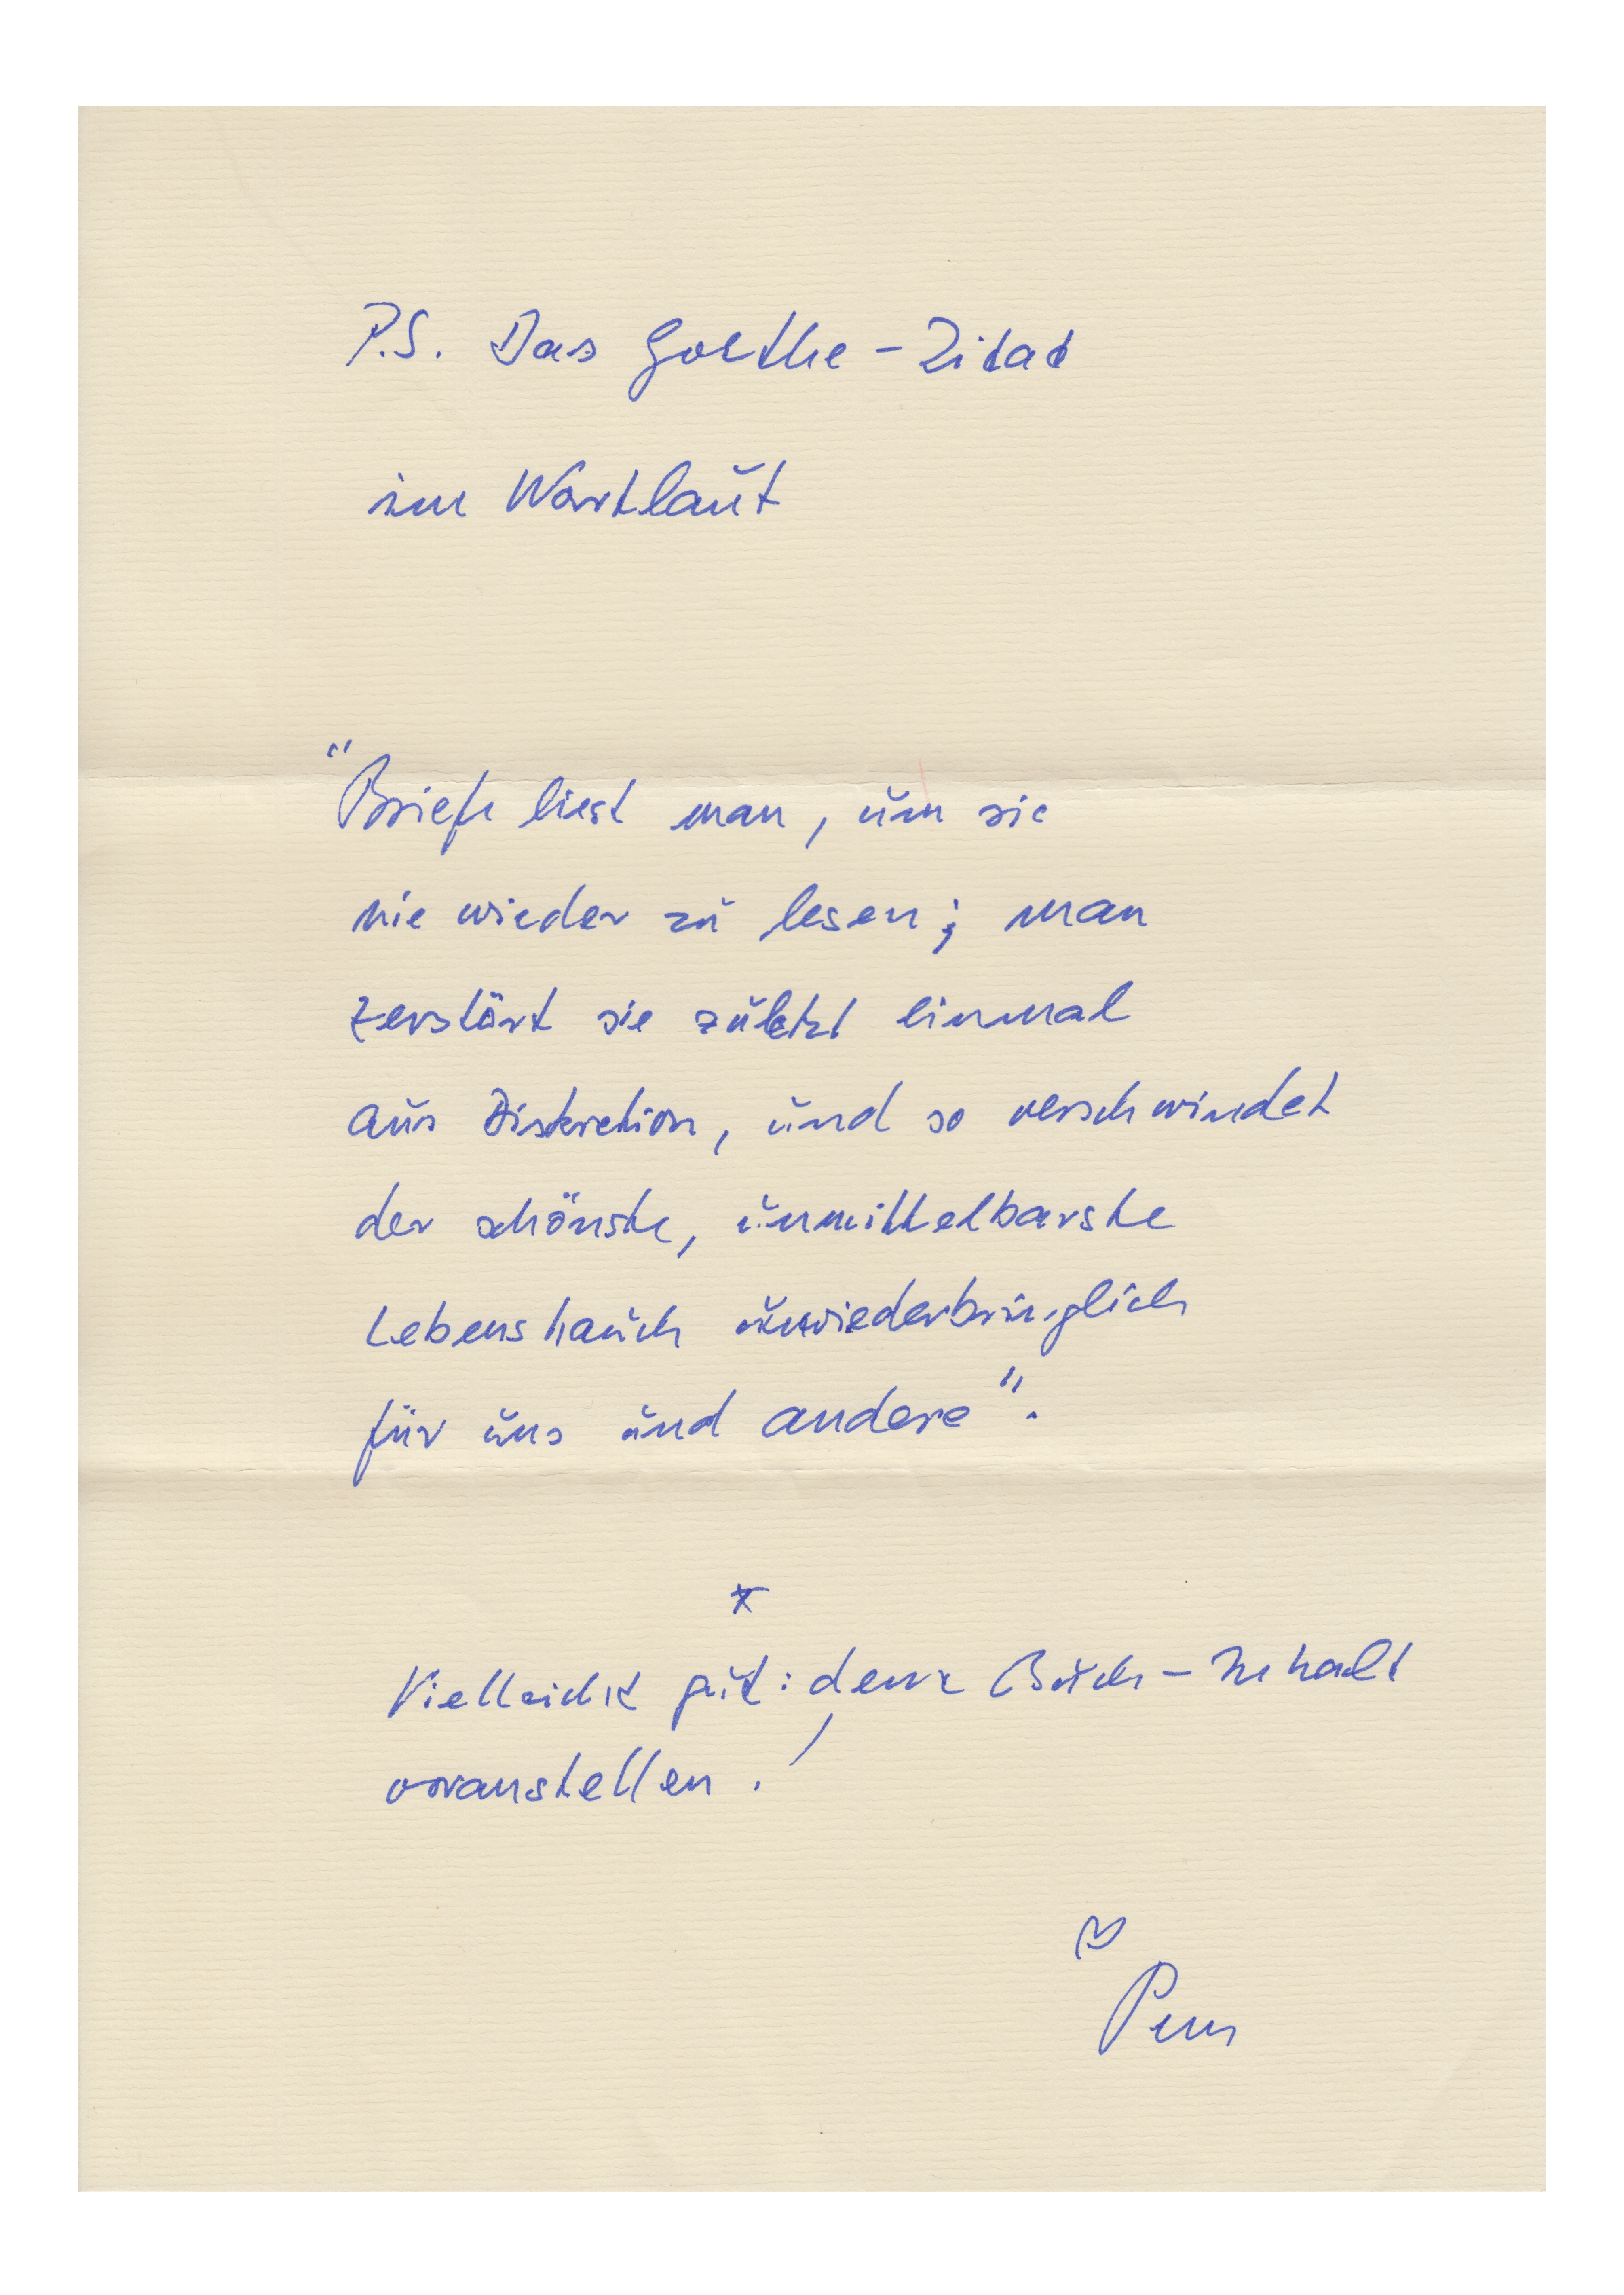 P.S. Das Goethe-Zitat
im Wortlaut
"Briefe liest man, um sie
nie wieder zu lesen; man
zerstört sie zuletzt einmal
aus Diskretion, und so verschwindet
der schönste, unmittelbarste
Lebenshauch unwiederbringlich
für uns und andere".
*
Vielleicht gut: dem Buch-Inhalt
voranstellen!